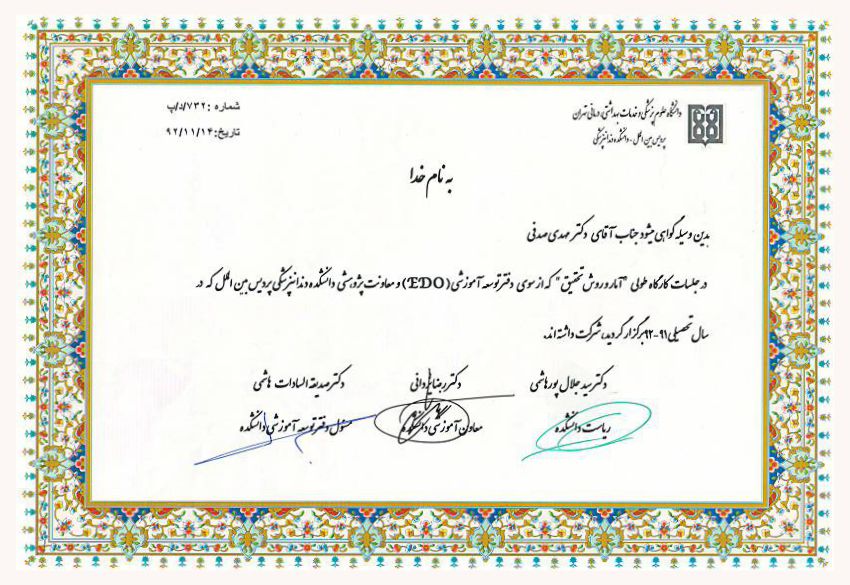 دانشگاه علوم پزشکی و خدمات بهداشتی درمانی تهران
پردیس بین الملل - دانشکده دندانپزشکی
شماره : ۷۳۲/د/پ
تاریخ: ۹۲/۱۱/۱۴
به نام خدا
بدین وسیله گواهی میشود جناب آقای دکتر مهدی صدفی
در جلسات کارگاه طولی "آمار و روش تحقیق" که از سوی دفتر توسعه آموزشی (EDO) و معاونت پژوهشی دانشکده دندانپزشکی پردیس بین الملل که در
سال تحصیلی ۹۱-۹۲ برگزار گردید، شرکت داشته اند.
دکتر سید جلال پورهاشمی دکتر رضا یزدانی دکتر صدیقه السادات هاشمی
ریاست دانشکده معاون آموزشی دانشکده مسئول دفتر توسعه آموزشی دانشکده